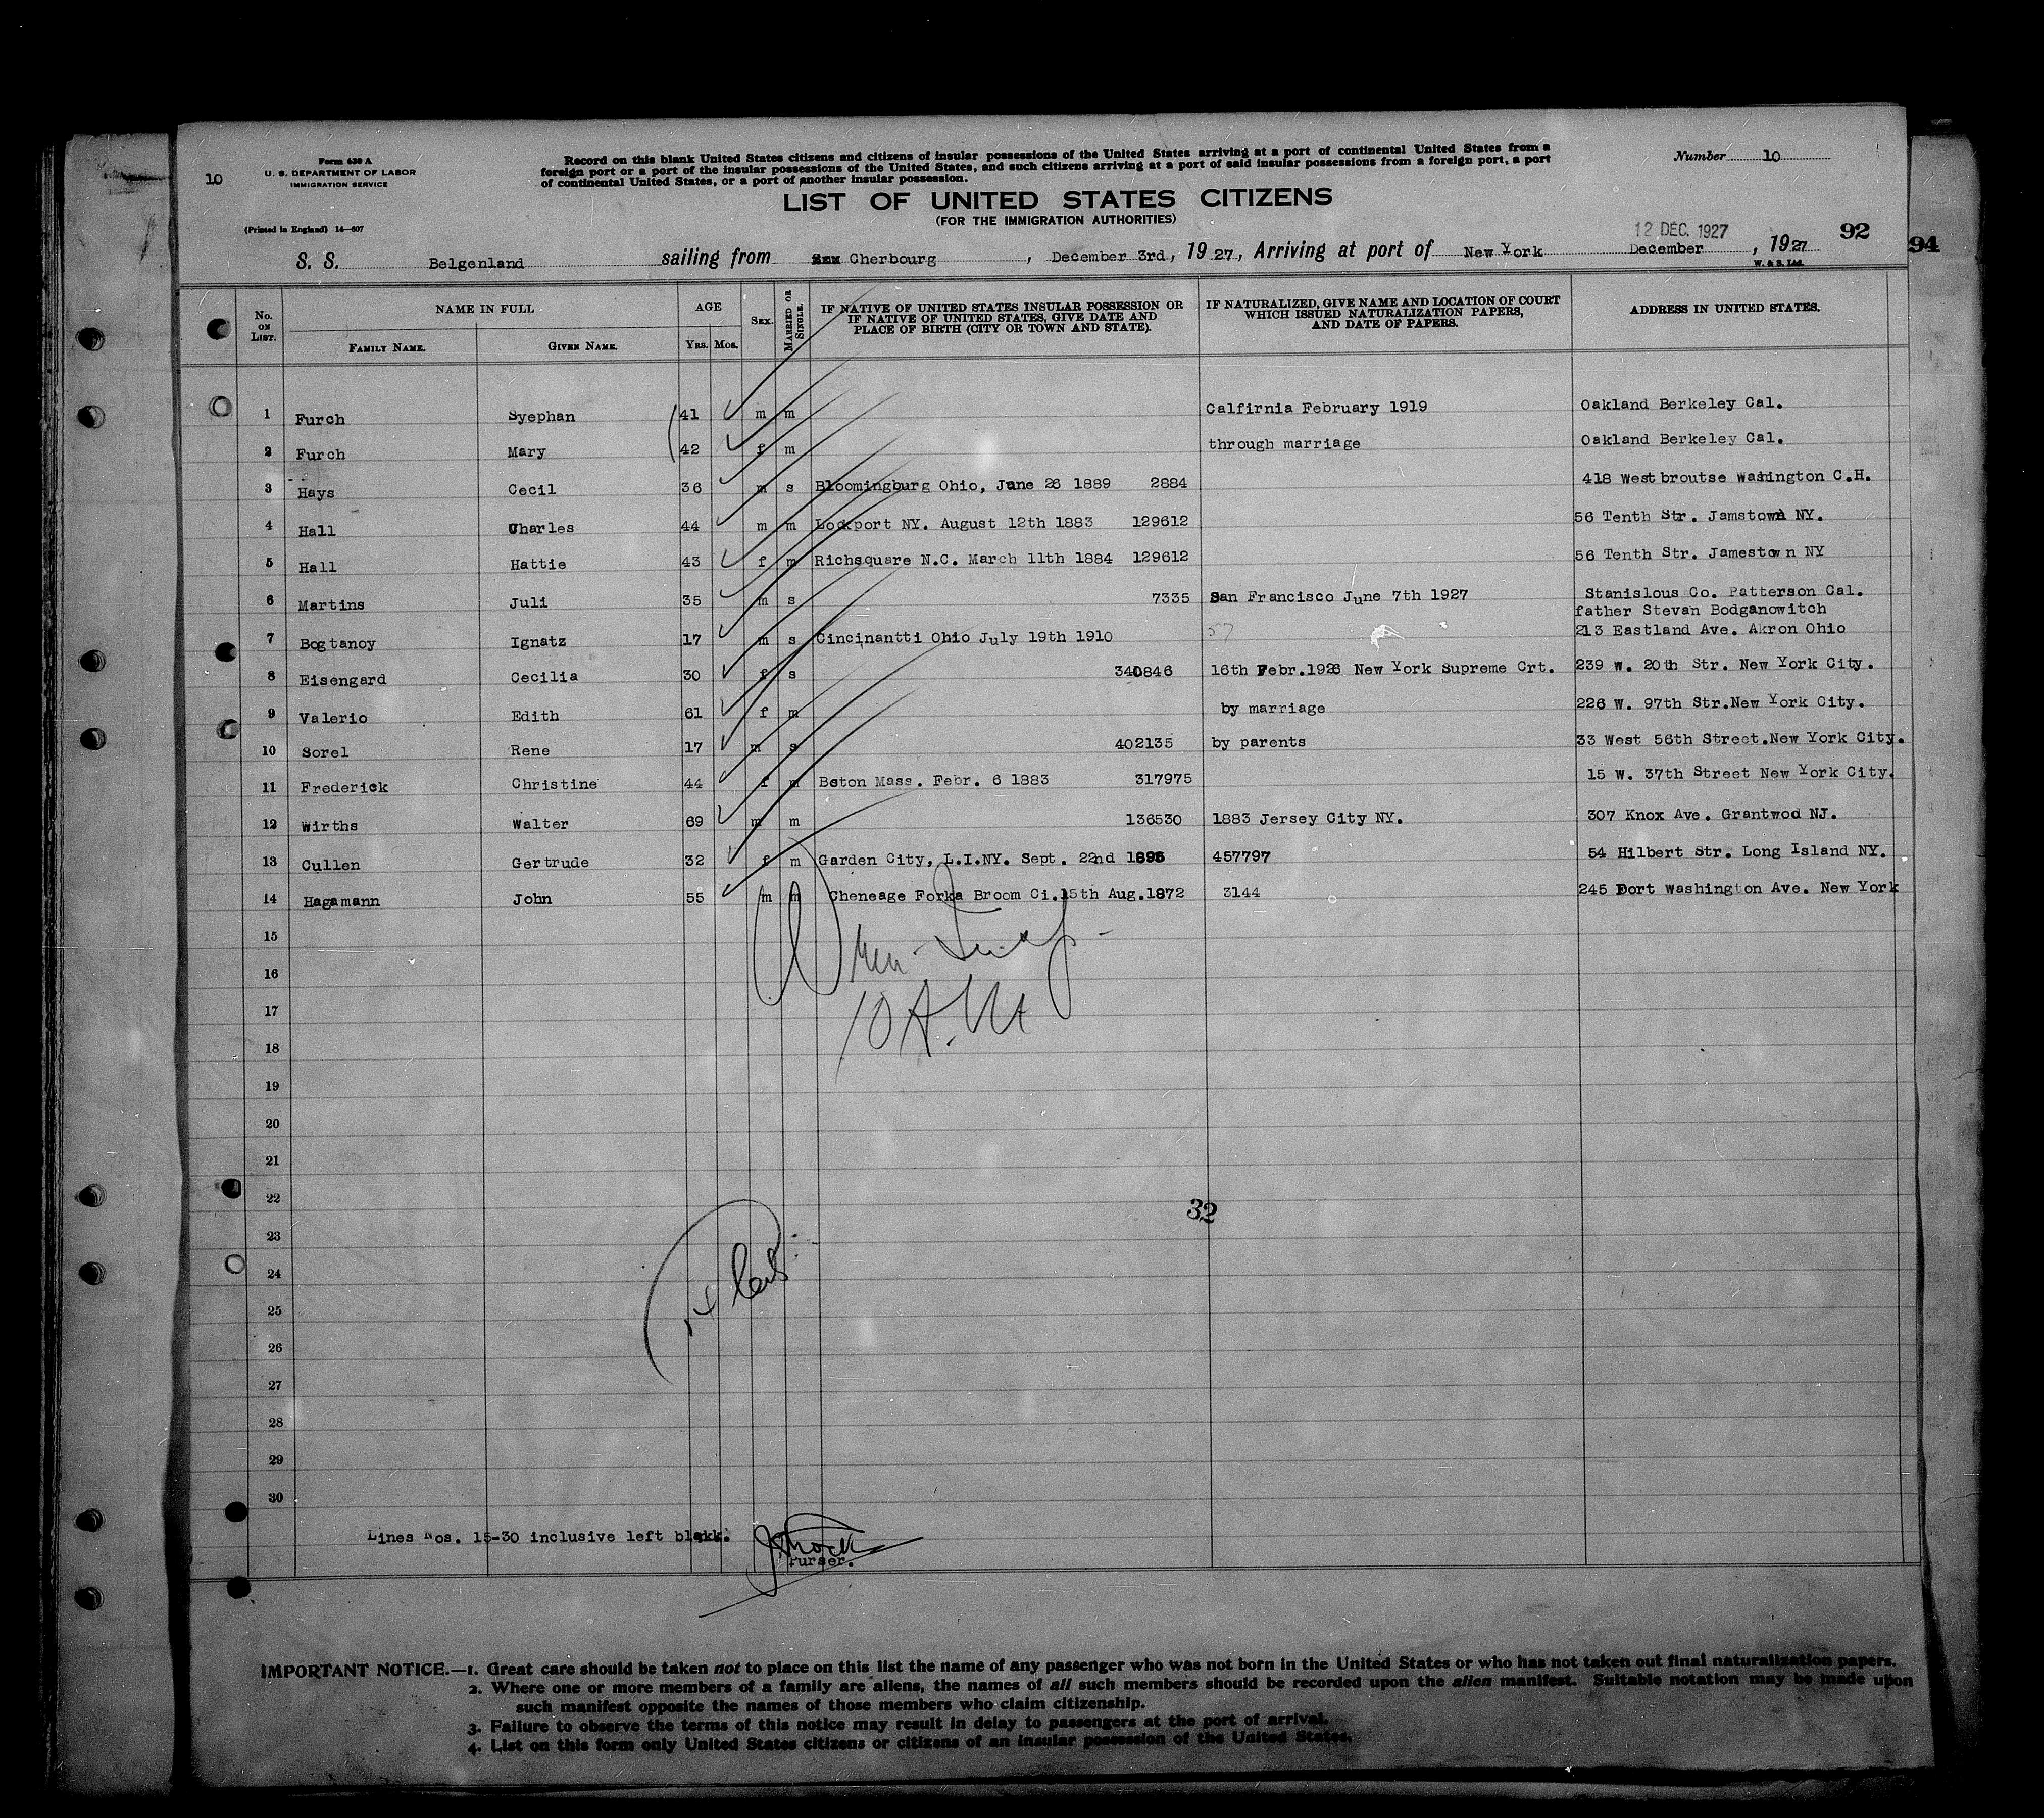 10
Form 630 A
U. S. DEPARTMENT OF LABOR
IMMIGRATION SERVICE
(Printed in England) 14—607
Record on this blank United States citizens and citizens of insular possessions of the United States arriving at a port of continental United States from a
foreign port or a port of the insular possessions of the United States, and such citizens arriving at a port of said insular possessions from a foreign port, a port
of continental United States, or a port of another insular possession.
Number 10
LIST OF UNITED STATES CITIZENS
(FOR THE IMMIGRATION AUTHORITIES)
12 DEC. 1927
92
94
S. S. Belgenland sailing from Cherbourg, December 3rd, 1927, Arriving at port of New York December, 1927
W. & S. Ltd.
No. ON LIST. NAME IN FULL FAMILY NAME. GIVEN NAME. AGE YRS. MOS. SEX. MARRIED OR SINGLE. IF NATIVE OF UNITED STATES INSULAR POSSESSION OR IF NATIVE OF UNITED STATES, GIVE DATE AND PLACE OF BIRTH (CITY OR TOWN AND STATE). IF NATURALIZED, GIVE NAME AND LOCATION OF COURT WHICH ISSUED NATURALIZATION PAPERS, AND DATE OF PAPERS. ADDRESS IN UNITED STATES.
1 Furch Syephan 41 m m Calfirnia February 1919 Oakland Berkeley Cal.
2 Furch Mary 42 f m through marriage Oakland Berkeley Cal.
3 Hays Cecil 36 m s Bloomingburg Ohio, June 26 1889 2884 418 West broutse Washington C.H.
4 Hall Charles 44 m m Lockport NY. August 12th 1883 129612 56 Tenth Str. Jamstown NY.
5 Hall Hattie 43 f m Richsquare N.C. March 11th 1884 129612 56 Tenth Str. Jamestown NY
6 Martins Juli 35 m s 7335 San Francisco June 7th 1927 Stanislous Co. Patterson Cal.
father Stevan Bodganowitch
7 Bogtanoy Ignatz 17 m s Cincinantti Ohio July 19th 1910 57 213 Eastland Ave. Akron Ohio
8 Eisengard Cecilia 30 f s 340846 16th Febr.1926 New York Supreme Crt. 239 W. 20th Str. New York City.
9 Valerio Edith 61 f m by marriage 226 W. 97th Str.New York City.
10 Sorel Rene 17 m s 402135 by parents 33 West 56th Street.New York City.
11 Frederick Christine 44 f m Boton Mass. Febr. 6 1883 317975 15 W. 37th Street New York City.
12 Wirths Walter 69 m m 136530 1883 Jersey City NY. 307 Knox Ave. Grantwod NJ.
13 Cullen Gertrude 32 f m Garden City, L.I.NY. Sept. 22nd 1895 457797 54 Hilbert Str. Long Island NY.
14 Hagamann John 55 m m Cheneage Forka Broom Ci.15th Aug.1872 3144 245 Fort Washington Ave. New York
15
16
10 A.M
17
18
19
20
21
22
32
23
24
25
26
27
28
29
30
Lines Nos. 15-30 inclusive left blank.
Purser.
IMPORTANT NOTICE.—1. Great care should be taken not to place on this list the name of any passenger who was not born in the United States or who has not taken out final naturalization papers.
2. Where one or more members of a family are aliens, the names of all such members should be recorded upon the alien manifest. Suitable notation may be made upon
such manifest opposite the names of those members who claim citizenship.
3. Failure to observe the terms of this notice may result in delay to passengers at the port of arrival.
4. List on this form only United States citizens or citizens of an insular possession of the United States.